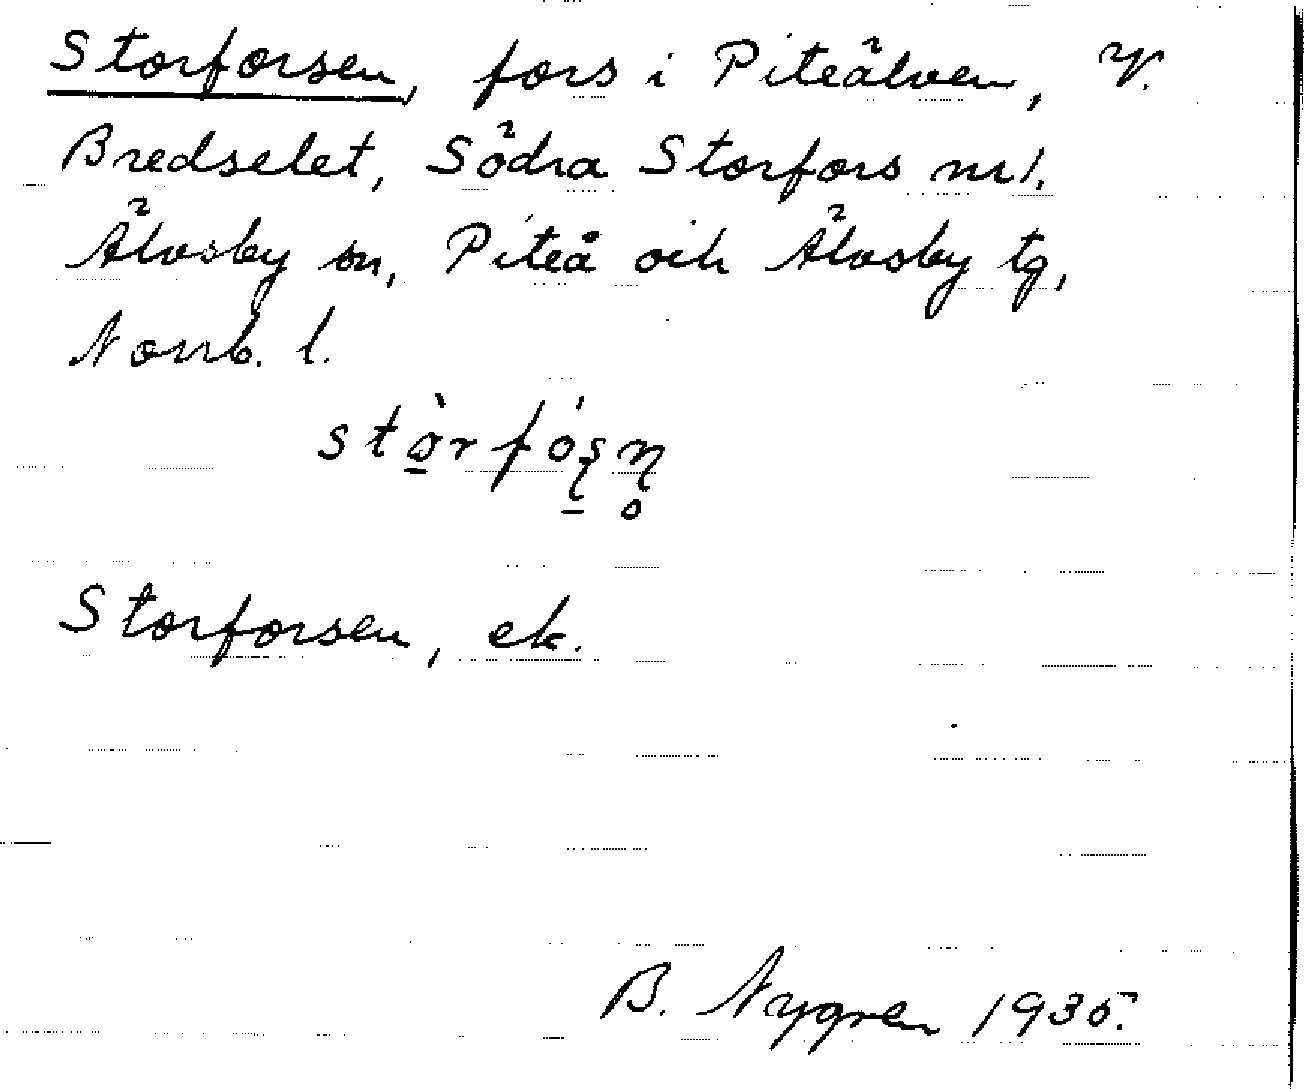 Storforsen, fors i Piteälven, V.
Bredselet, Södra Storfors nr 1.
Älvsby sn, Piteå och Älvsby tg,
Norrb. l.
stò̲rfó̲ʂɳ̥
Storforsen, ek.
B. Nygren 1935.